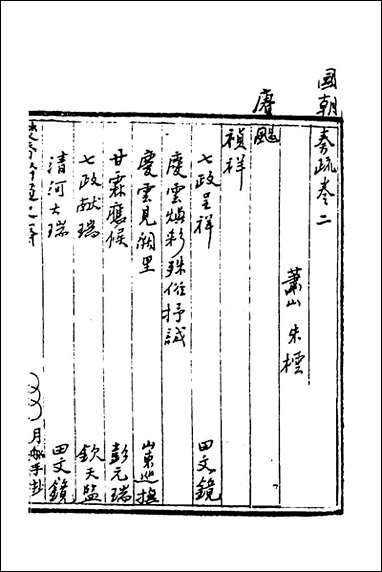 國朝奏疏卷二
蕭山 朱橒
賡颺
禎祥
七政呈祥 田文鏡
慶雲煥彩殊俗抒誠
慶雲見闕里 山東巡撫
甘霖應候 彭元瑞
七政献瑞 欽天監
清河大瑞 田文鏡